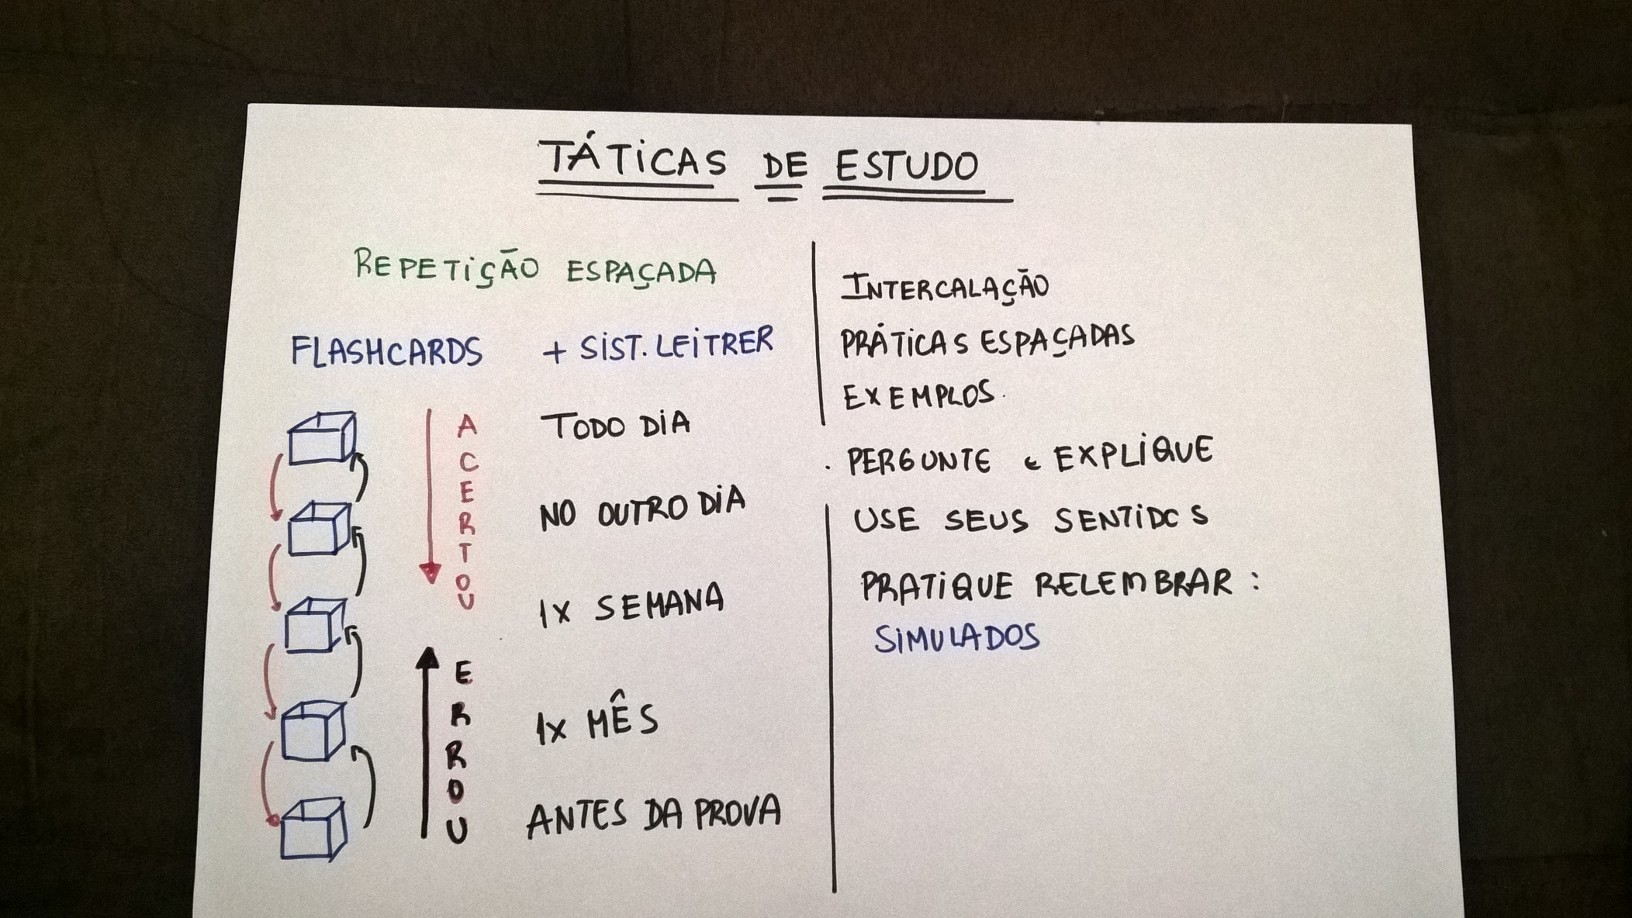 TÁTICAS DE ESTUDO
REPETIÇÃO ESPAÇADA
FLASHCARDS + SIST. LEITRER
ACERTOU
ERROU
TODO DIA
NO OUTRO DIA
1X SEMANA
1X MÊS
ANTES DA PROVA
INTERCALAÇÃO
PRÁTICAS ESPAÇADAS
EXEMPLOS.
. PERGUNTE e EXPLIQUE
USE SEUS SENTIDOS
PRATIQUE RELEMBRAR :
SIMULADOS